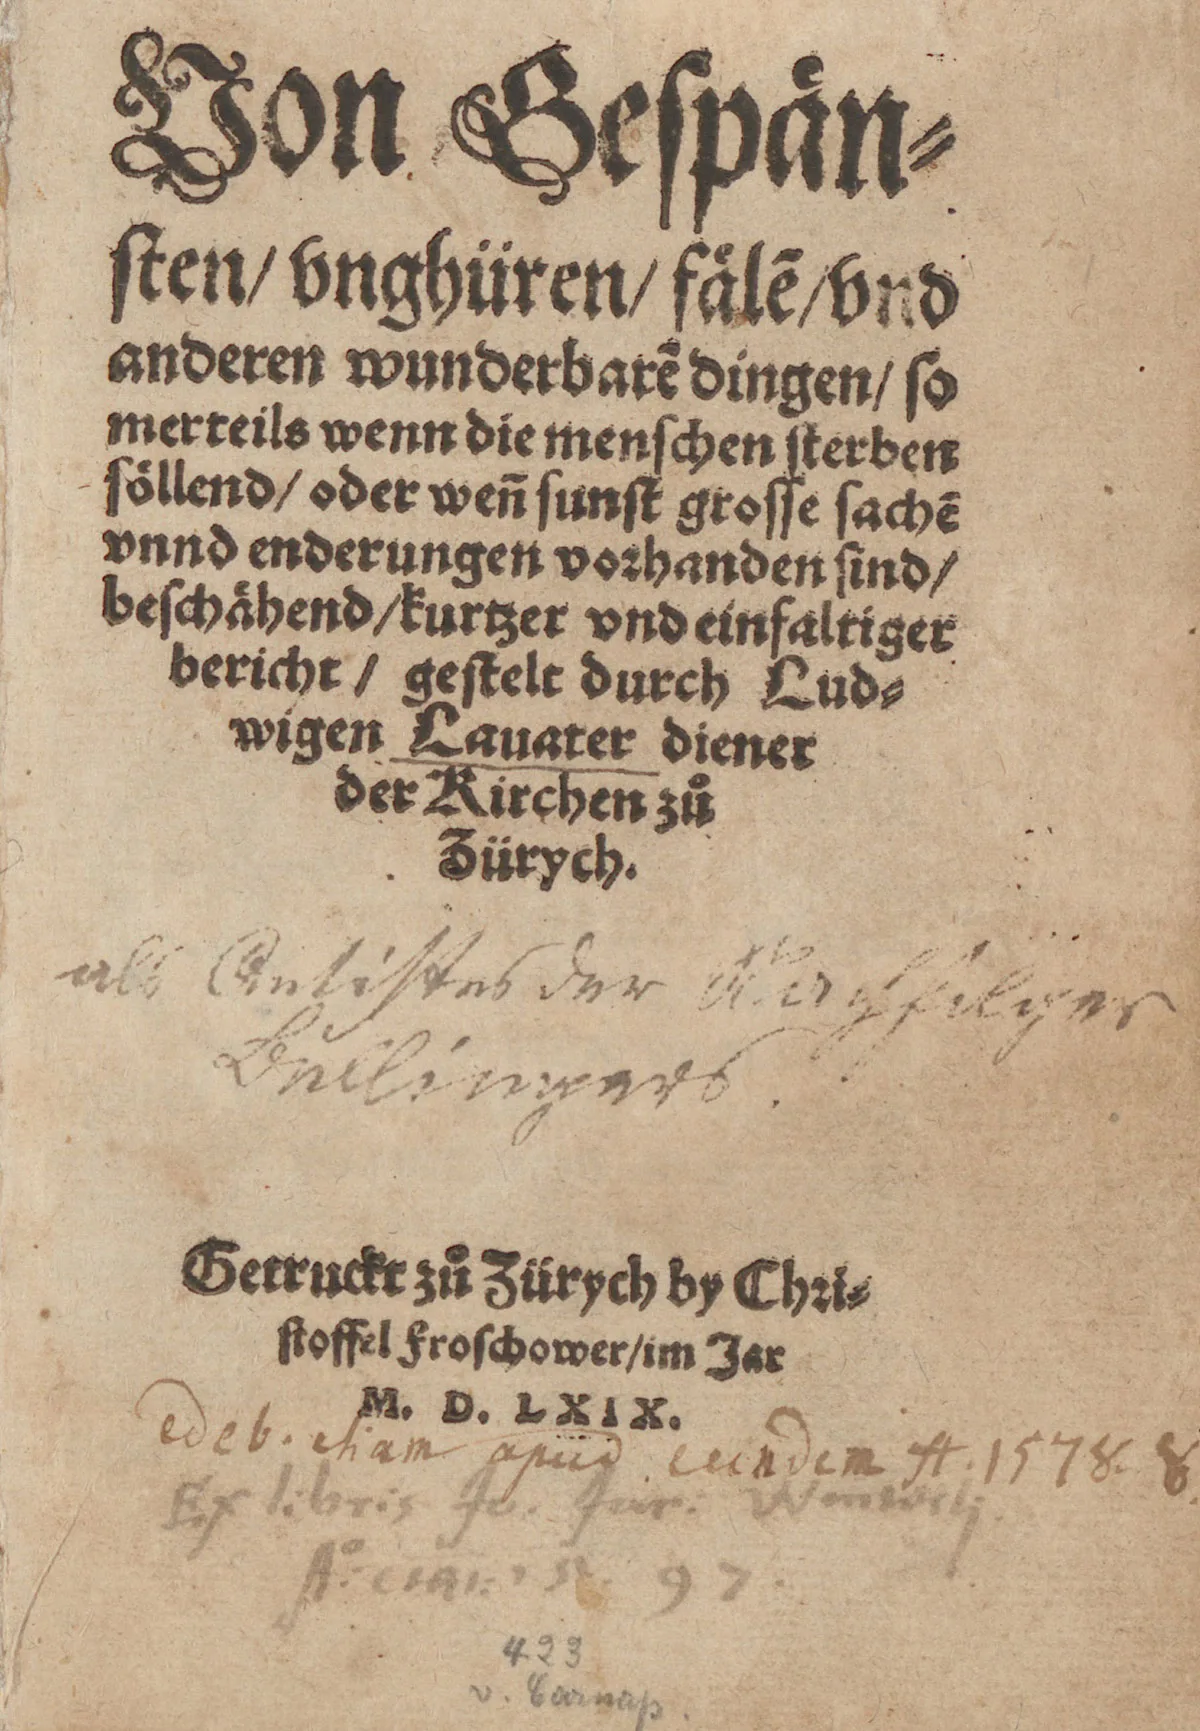 Von Gespån⸗
sten/ vnghüren/ fålē/ vnd
anderen wunderbarē dingen/ so
merteils wenn die menschen sterben
söllend/ oder weñ sunst grosse sachē
vnnd enderungen vorhanden sind/
beschåhend/ kurtzer vnd einfaltiger
bericht/ gestelt durch Lud⸗
wigen Lauater diener
der Kirchen zů
Zürych.
als Antistes der Nachfolger
Bullingers.
Getruckt zů Zürych by Chri⸗
stoffel Froschower/ im Jar
M. D. LXIX.
edeb. etiam apud eundem A. 1578. 8
Ex libris Jo.
97
423
v. Carnap.